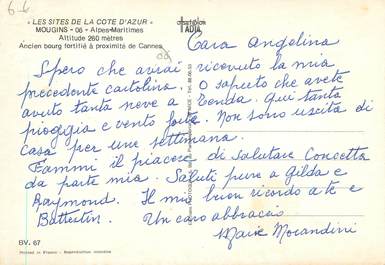 6-6
« LES SITES DE LA COTE D'AZUR »
MOUGINS - 06 - Alpes-Maritimes
Altitude 260 mètres
Ancien bourg fortifié à proximité de Cannes
Cara Angelina
Spero che avrai ricevuto la mia
precedente cartolina. O saputo che avete
avuto tanta neve a Tenda. Qui tanta
pioggia e vento forte. Non sono uscita di
casa per una settimana.
Fammi il piacere di salutare Concetta
da parte mia. Saluti pure a Gilda e
Raymond. Il mio buon ricordo a te e
Battestin. Un caro abbraccio
Marie Morandini
BV. 67
Printed in France - Reproduction interdite